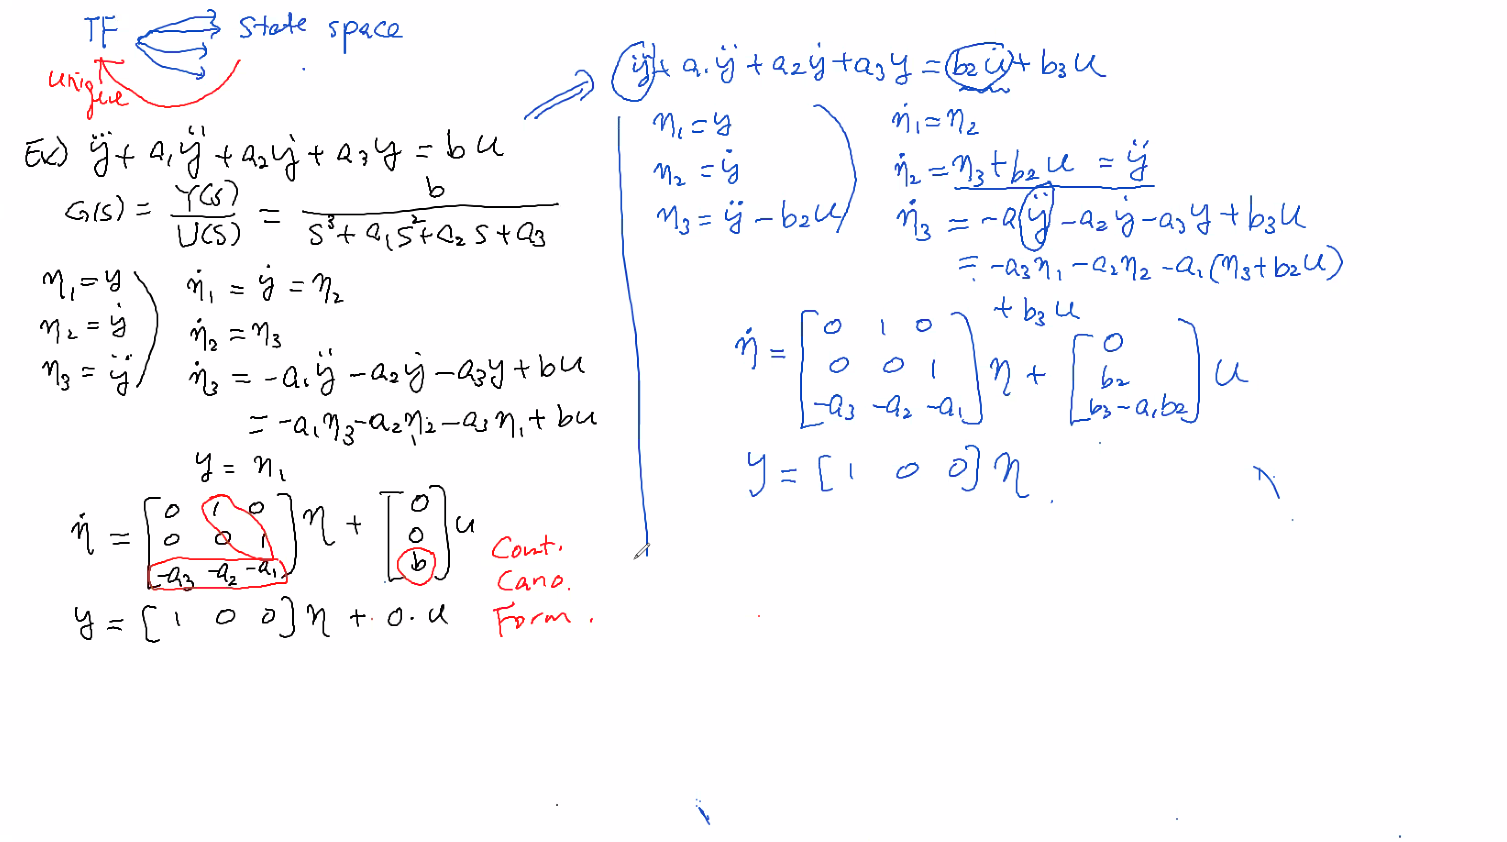 TF → state space
unique
Ex) y⃛ + a₁ÿ + a₂ẏ + a₃y = bu
G(s) = Y(s)/U(s) = b/(s³ + a₁s² + a₂s + a₃)
η₁ = y   η̇₁ = ẏ = η₂
η₂ = ẏ   η̇₂ = η₃
η₃ = ÿ   η̇₃ = -a₁ÿ - a₂ẏ - a₃y + bu
= -a₁η₃ - a₂η₂ - a₃η₁ + bu
y = η₁
η̇ = [0 1 0; 0 0 1; -a₃ -a₂ -a₁] η + [0; 0; b] u
Cont.
Cano.
Form.
y = [1 0 0] η + 0·u
y⃛ + a₁ÿ + a₂ẏ + a₃y = b₂u̇ + b₃u
η₁ = y   η̇₁ = η₂
η₂ = ẏ   η̇₂ = η₃ + b₂u = ÿ
η₃ = ÿ - b₂u   η̇₃ = -a₁ÿ - a₂ẏ - a₃y + b₃u
= -a₃η₁ - a₂η₂ - a₁(η₃ + b₂u)
+ b₃u
η̇ = [0 1 0; 0 0 1; -a₃ -a₂ -a₁] η + [0; b₂; b₃ - a₁b₂] u
y = [1 0 0] η